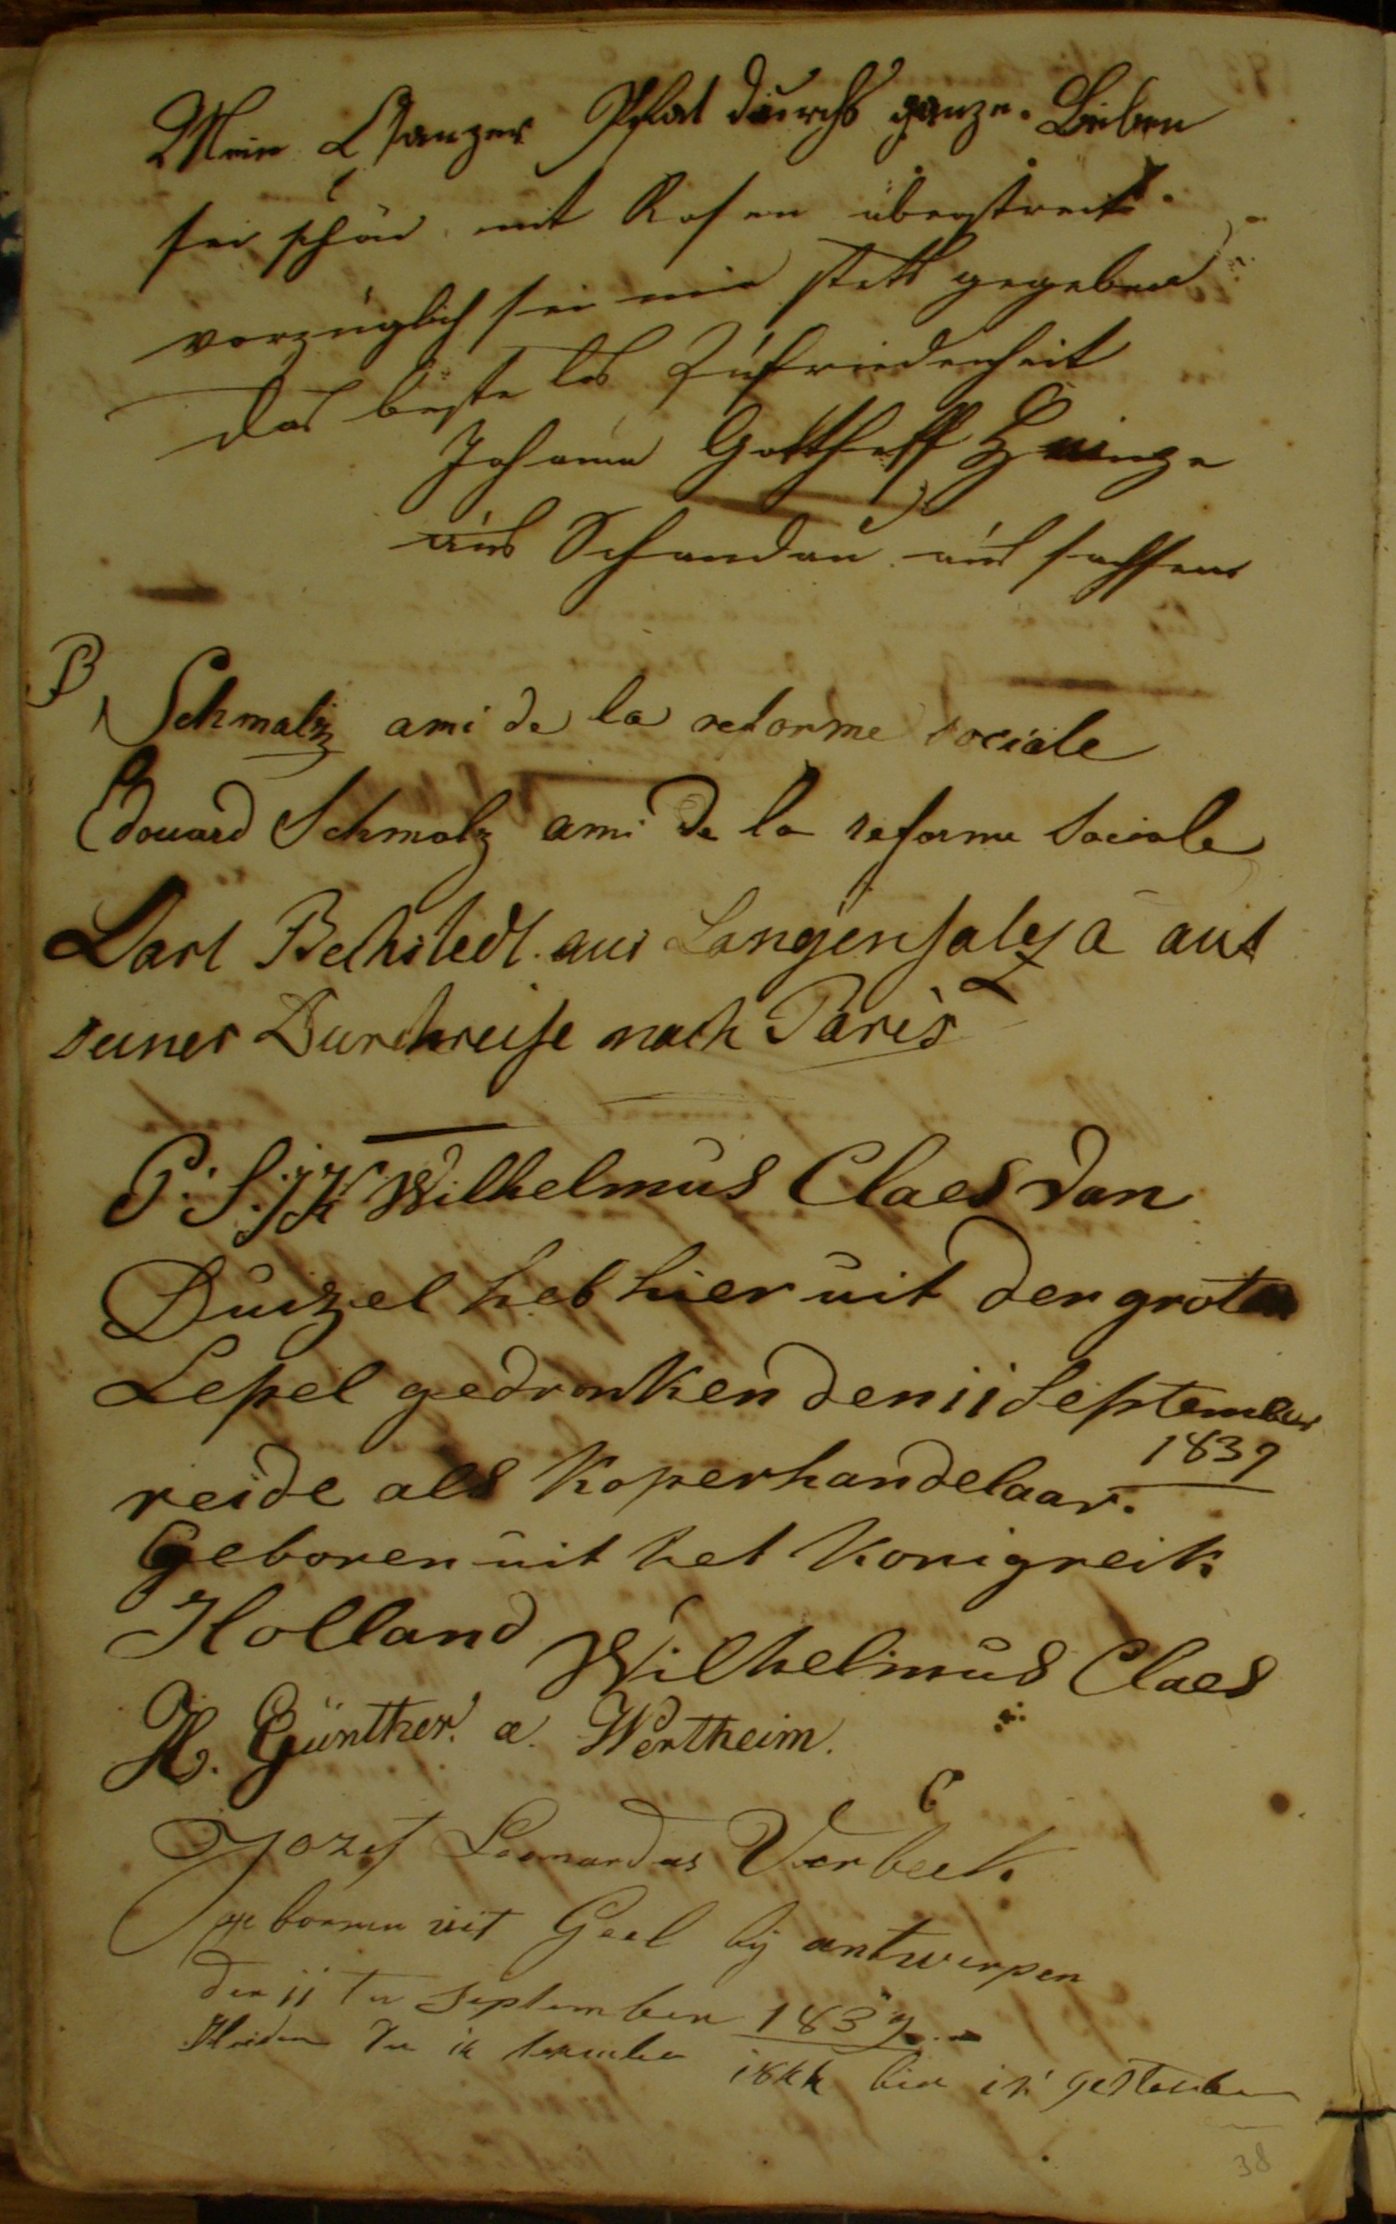 Mein Ganzer Pfat durchs ganze Leben
sei schön mit Rosen überstreit
vorzüglich sei mir stets gegeben
das beste los Zufriedenheit
Johann Gotthelf Heinze
aus Schandau aus sachsen
Schmaltz ami de la reforme sociale
Edouard Schmalz ami de la reforme Sociale
Carl Bechstedt aus Langensalza auf
seiner Durchreise nach Paris
P: S. Ik Wilhelmus Claes van
Duizel heb hier uit der groten
Lepel gedronken den 11 September
1839
reide als Koperhandelaar.
Geboren uit het Konigreik
Holland Wilhelmus Claes
H. Günther. a. Wertheim.
Jozef Leonardus Verbeek
geboren uit Geel bij antwerpen
den 11 ten September 1839
ik 18kk bin ich gestorben
38